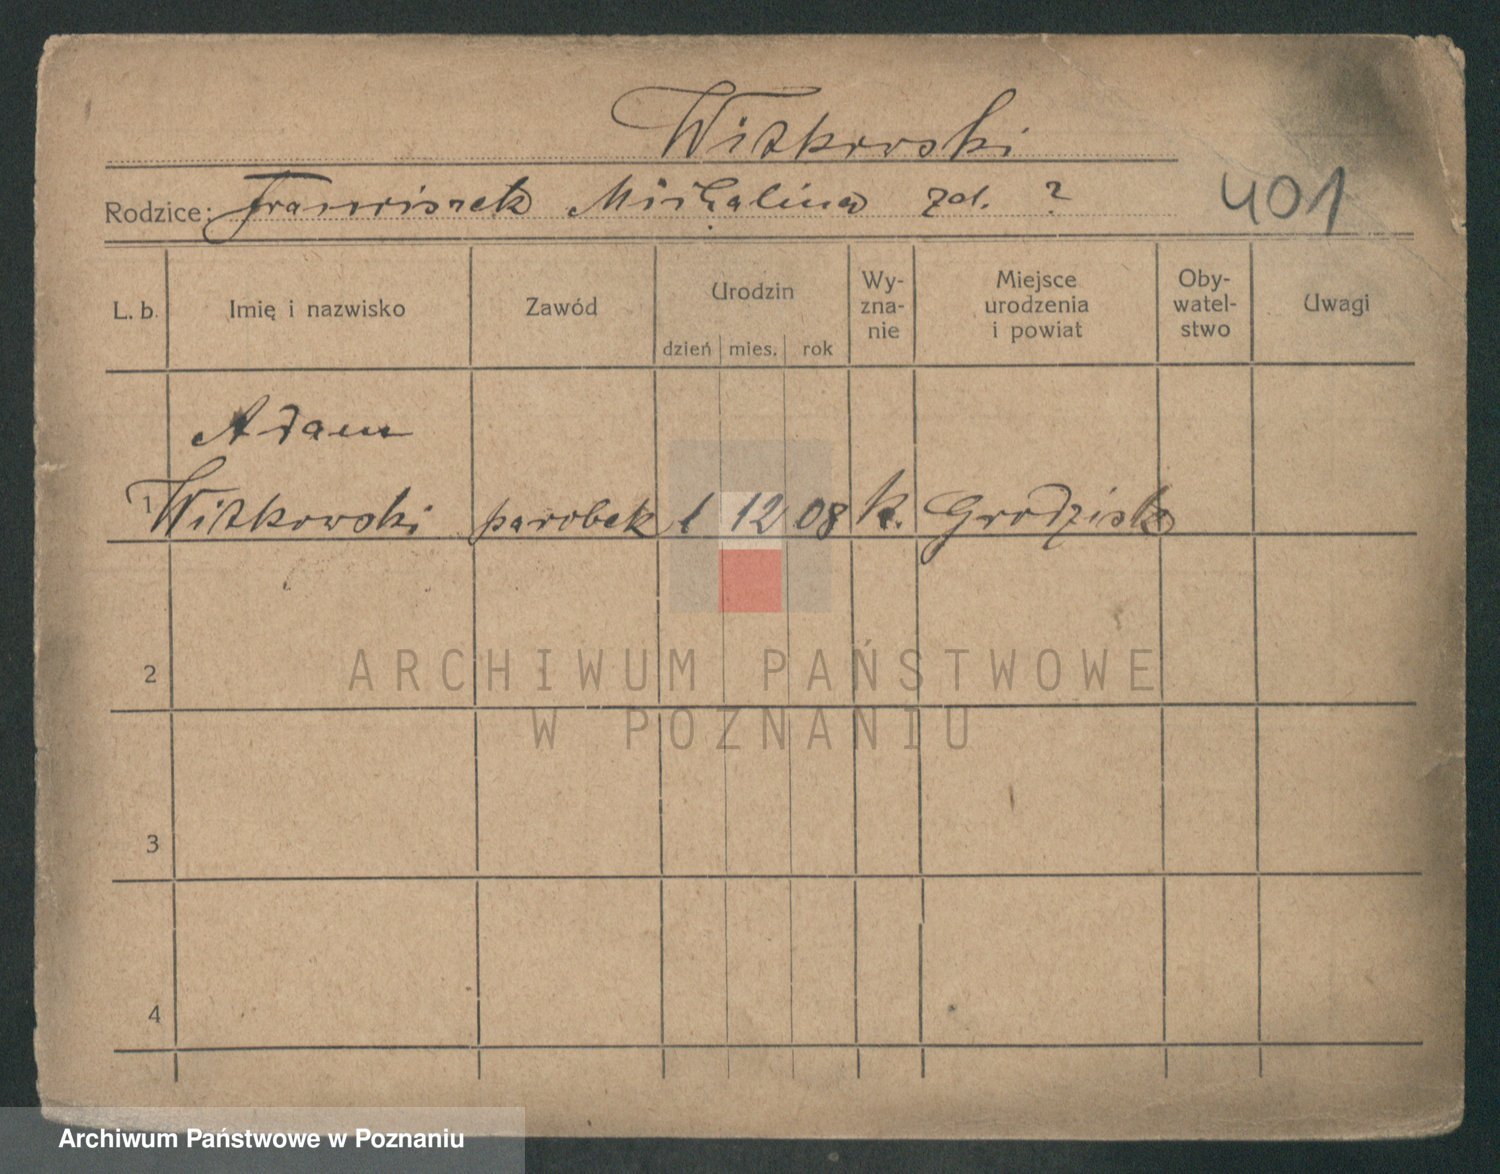 Witkowski
Rodzice: Franciszek Michalina zd. ?
401
L. b. Imię i nazwisko Zawód Urodzin dzień mies. rok Wy-zna-nie Miejsce urodzenia i powiat Oby-watel-stwo Uwagi
Adam
1 Witkowski parobek 1 12 08 k. Grodzisk
2
ARCHIWUM PAŃSTWOWE
W POZNANIU
3
4
Archiwum Państwowe w Poznaniu